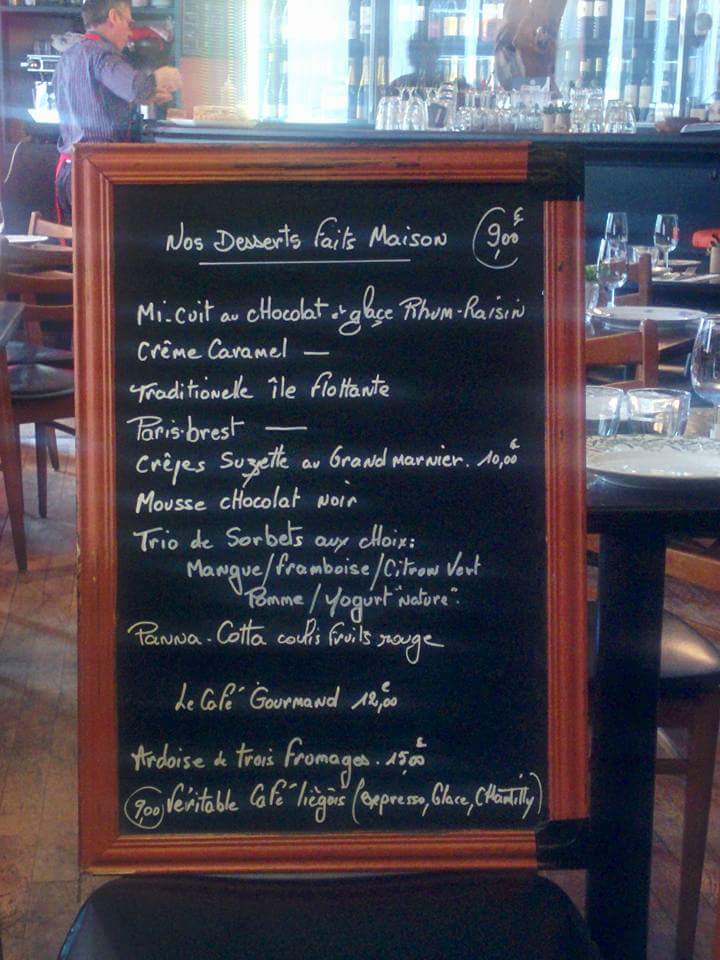 Nos Desserts faits Maison 9,00€
Mi-cuit au cHocolat et glaçe Rhum-Raisin
Crême Caramel —
Traditionelle île flottante
Paris-brest —
Crêpes Suzette au Grand marnier. 10,00€
Mousse cHocolat noir
Trio de Sorbets aux cHoix:
Mangue/framboise/Citron Vert
Pomme/Yogurt "nature".
Panna-Cotta coulis fruits rouge
Le Café Gourmand 12,00€
Ardoise de trois fromages. 15,00€
9,00 Véritable Café liègois (Expresso, Glace, CHantilly)